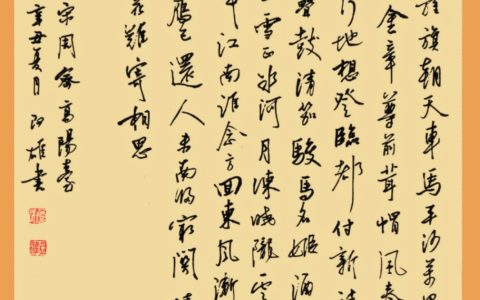 旌旗朝天車馬平沙萬里
金章尊前茸帽風
行地想登臨都付新詩
疊鼓清笳駿馬名姬酒
雪正冰河月凍曉隴雲
年江南誰念方回東風漸
雁已還人未南歸最關情
花難寄相思
宋周密高陽臺
辛丑夏月 雄書